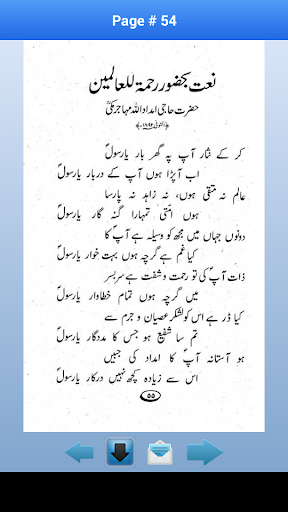 Page # 54
نعت بحضور رحمۃ للعالمین
حضرت حاجی امداد اللہ مہاجر مکیؒ
کر کے نثار آپ پہ گھر بار یا رسولؐ
اب آپڑا ہوں آپ کے دربار یا رسولؐ
عالم نہ متقی ہوں، نہ زاہد نہ پارسا
ہوں امتی تمہارا گنہ گار یا رسولؐ
دونوں جہاں میں مجھ کو وسیلہ ہے آپؐ کا
کیا غم ہے گرچہ ہوں بہت خوار یا رسولؐ
ذات آپؐ کی تو رحمت و شفقت ہے سر بسر
میں گرچہ ہوں تمام خطاوار یا رسولؐ
کیا ڈر ہے اس کو لشکر عصیان و جرم سے
تم سا شفیع ہو جس کا مددگار یا رسولؐ
ہو آستانہ آپؐ کا امداد کی جبیں
اس سے زیادہ کچھ نہیں درکار یا رسولؐ
۵۵